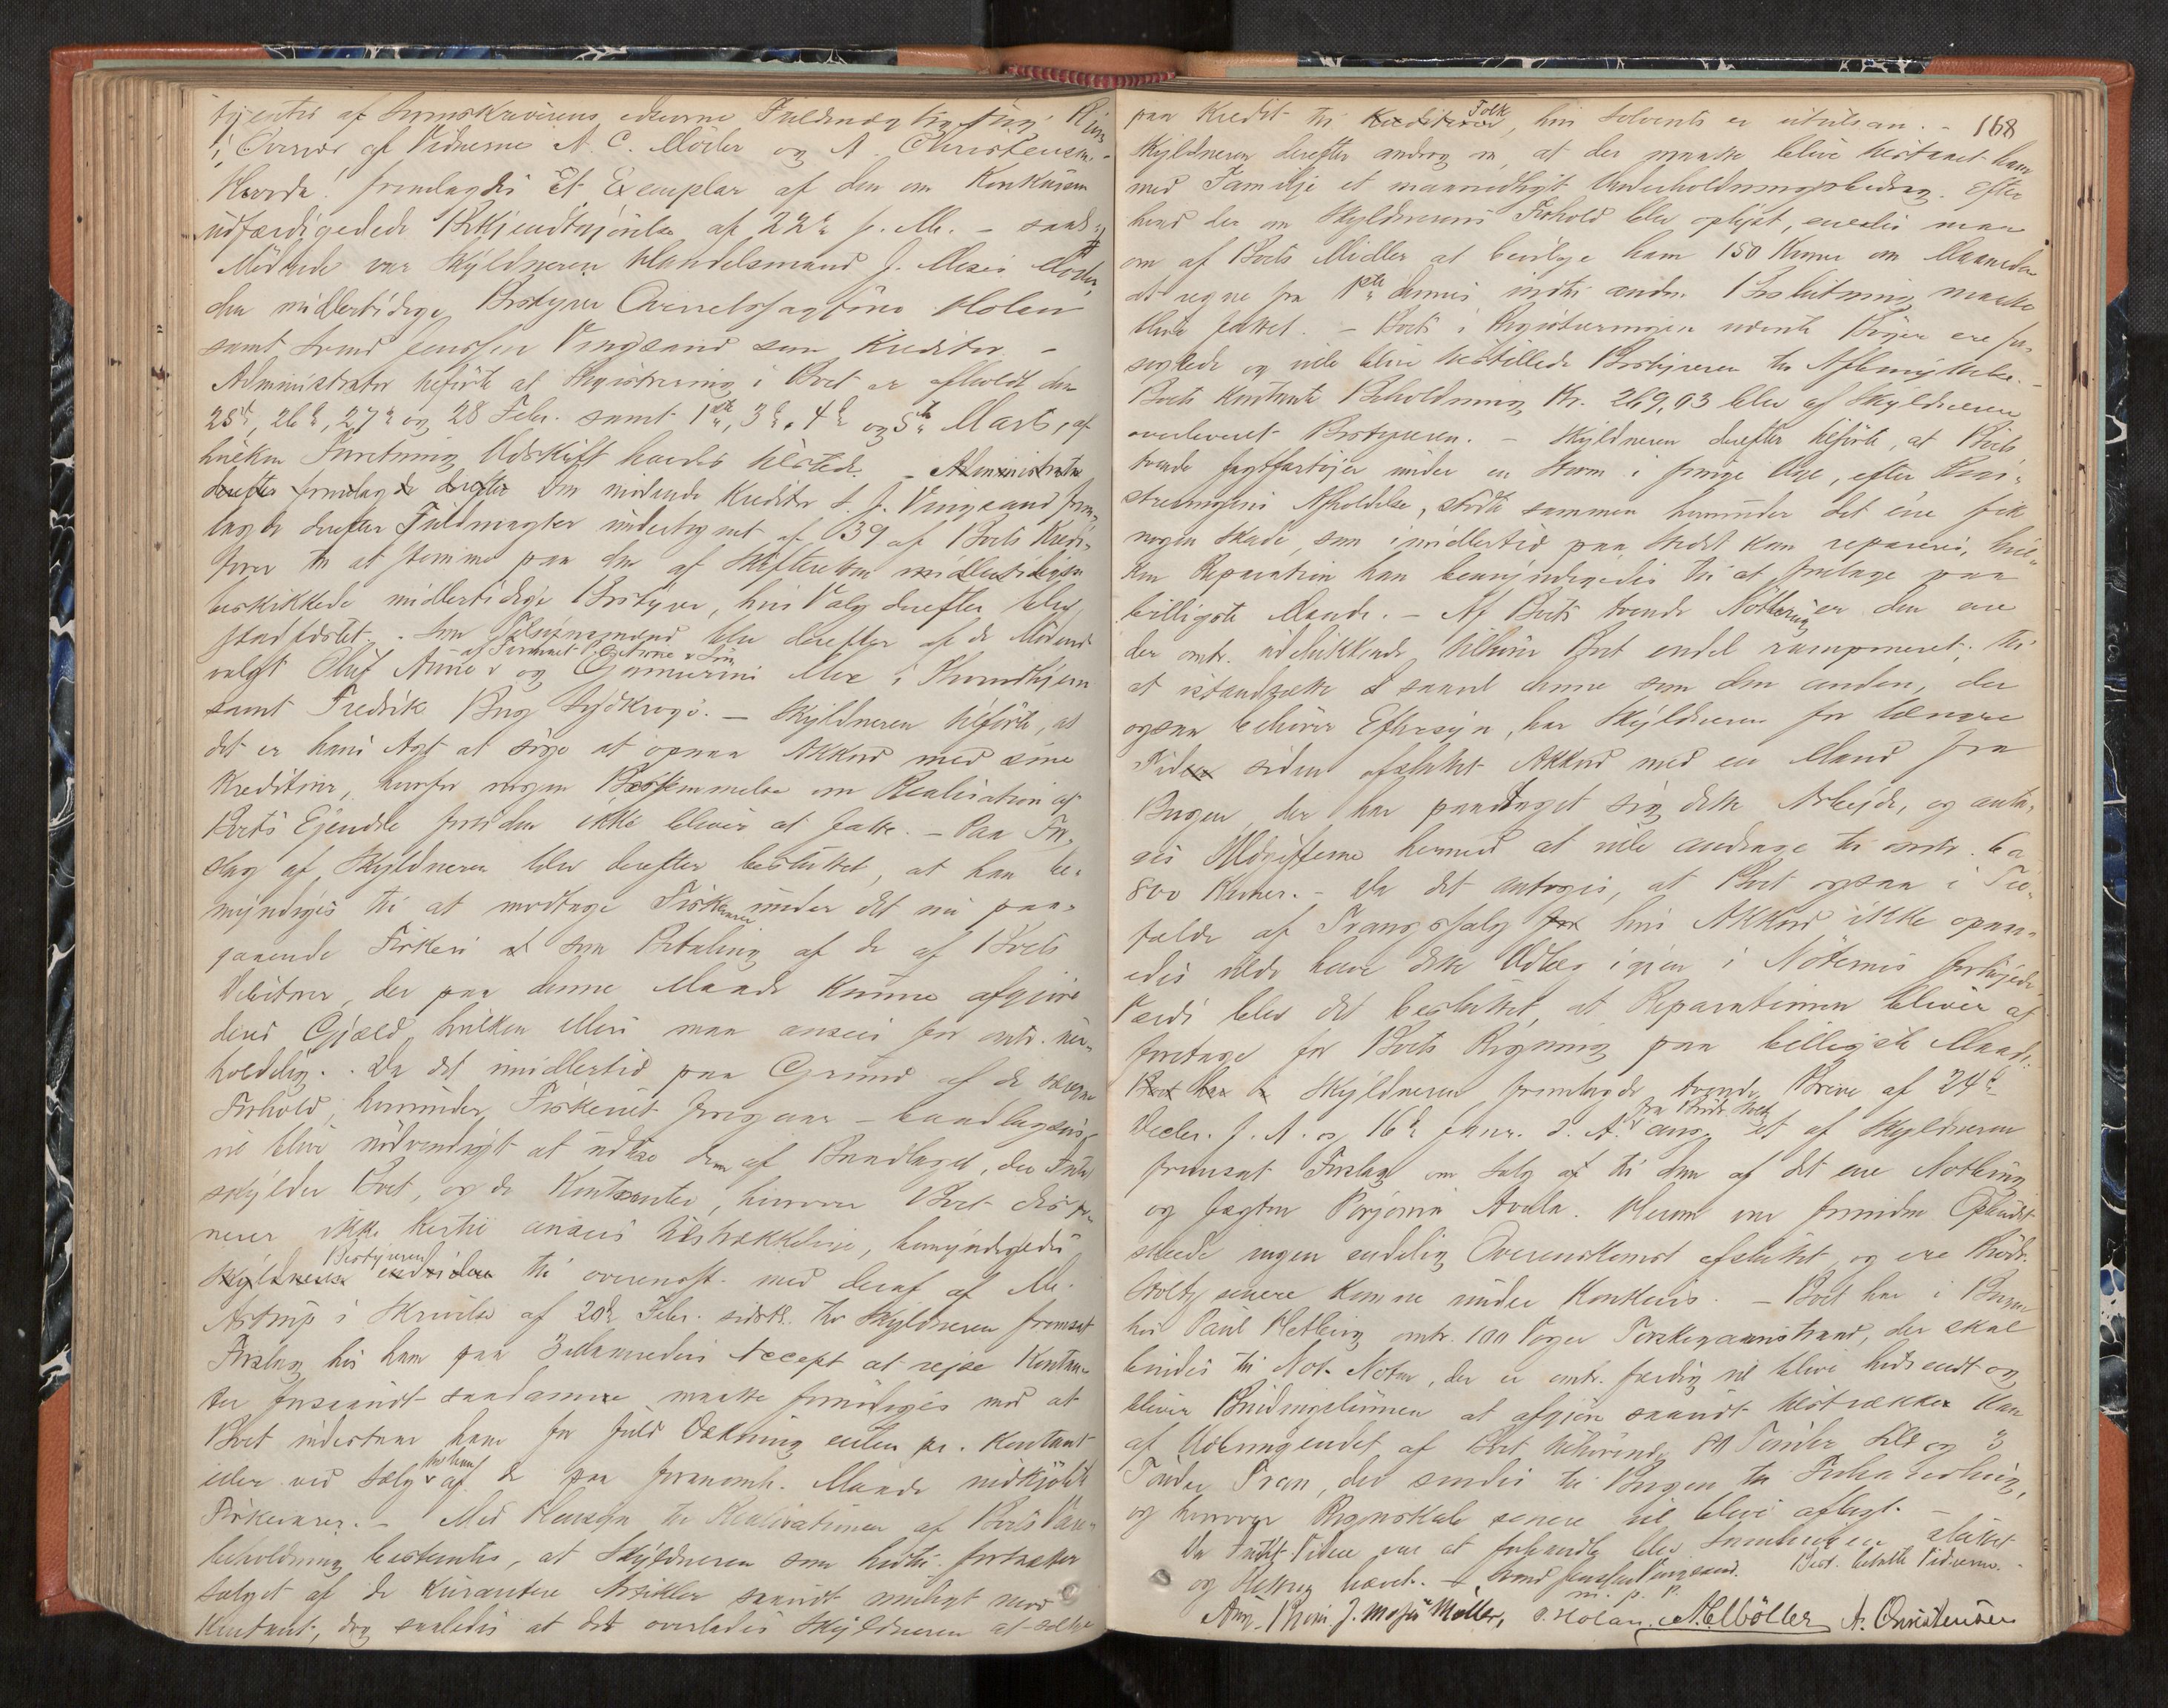 af Sorenskriverens edsvorne Fuldmægtig Aug.
i Overvær af Vidnerne N. C. Möller og A. Christensen.
Hvorda: fremlagdes Et Exemplar af den om Konkursen
udfærdigede Bekjendtgjörelse af 22de f. M. –
Mödende var Skyldneren Handelsmand J. Möller,
den midlertidige Bestyrer Overretssagförer Holan
samt Svend Jenssen Vingsand som Kreditor –
Administrator tilförte at Registrering i Boet er afholdt den
25de, 26de, 27de og 28 Febr. samt 1ste, 3de, 4de og 5te Marts, af
hvilken Forretning Udskrift haves tilstede. – Administrator
derefter fremlagde derefter Den mødende Kreditor S. J. Vingsand frem-
lagde derefter Fuldmagter undertegnet af 39 af Boets Kredi-
torer til at stemme paa den af Skifteretten midlertidigen
beskikkede midlertidige Bestyrer, hvis Valg derefter blev
stadfæstet. – Som Tilsynsmænd blev derefter af de Mødende
valgt Oluf Aune og i Throndhjem
samt Fredrik – Skyldneren tilförte, at
det er hans Agt at söge at opnaa Akkord med sine
Kreditorer, hvorfor nogen Bestemmelse om Realisation af
Boets Ejendele foreiden ikke bliver at fatte. – Paa For-
slag af Skyldneren blev derefter besluttet, at han be-
myndiges til at modtage Fiskevarer under det nu paa-
gaaende Fiskeri at som Betaling af de af Boets
Debitorer, der paa denne Maade kunne afgjöre
deres Gjæld, hvilken ellers man ansees for omtr. uer-
holdelig. – Da det imidlertid paa Grund af de
Forhold, hvorunder Fiskeriet foregaar –
vil blive nödvendigt at udlöse dem af Baadlaget, der Intet
skylder Boet, og de Kontanter, hvorover Boet dispo-
nerer ikke hertil ansees tilstrækkelige, bemyndigedes
Skyldneren Bestyreren til overensst. med deraf af M.
Astrup i Skrivelse af 20de Febr. sidstl. til Skyldneren fremsat
Forslag hos ham paa 3 Maaneders Accept at rejse Kontan-
ter forsaavidt saadanne maatte fornödiges mod at
Boet indestaar ham for fuld Dækning enten pr. Kontant
eller ved Salg hos ham af de paa forannævnte Maade indkjöbte
Fiskevarer. – Med Hensyn til Realisationen af Boets Vare-
beholdning bestemtes, at Skyldneren som hidtil fortsætter
Salget af de kurantere Artikler saavidt muligt mod
Kontant, dog saaledes at det overlades Skyldneren at sælge
168
paa Kredit til Kreditorer Folk, hvis Solvents er utvilsom. –
Skyldneren derefter androg om, at der maatte blive tilstaaet ham
med Familje et maanedligt Underholdningsbidrag. Efter
hvad der om Skyldnerens Forhold blev oplyst, enedes man
om af Boets Midler at bevilge ham 150 Kroner om Maaneden
at regne fra 1ste dennes indtil anden Beslutning maatte
blive fattet. – Boets i Registreringen nævnte Böger ere for-
seglede og ville blive tilstillede Bestyreren til Afbenyttelse. –
Boets Kontante Beholdning Kr. 269,93 blev af Skyldneren
overleveret Bestyreren. – Skyldneren derefter tilförte, at Boets
tvende Jagtfartöjer under en Storm i forrige Uge, efter Regi-
streringens Afholdelse, stödte sammen hvorunder det ene fik
nogen Skade, som imidlertid paa Stedet kan repareres, hvil-
ken Reparation han bemyndigedes til at foretage paa
billigste Maade. – Af Boets tvende Nötter er den ene
der omtr. udelukkende tilhörer Boet endel ramponeret; til
at istandsætte saavel denne som den anden, der
ogsaa behöver Eftersyn, har Skyldneren for længere
Tid siden afsluttet Akkord med en Mand fra
Bergen, der har paataget sig dette Arbejde, og anta-
ges Udgifterne hermed at ville andrage til omtr. 6 a
800 Kroner. – Da det antoges, at Boet ogsaa i Til-
fælde af Tvangssalg hvis Akkord ikke opnaa-
edes vilde have dette Udlæg igjen i Nöternes forhöjede
Værdi blev det besluttet, at Reparationen bliver at
foretage for Boets Regning paa billigste Maade.
Skyldneren fremlagde tvende Breve af 24de
Decbr. f. A. og 16de Janr. d. A. fra Brödr. Holtz ang. et af Skyldneren
fremsat Forslag om Salg af til dem af det ene Notbrug
og Jagten Avala. Herom var foreiden
skeede ingen endelig Overenskomst afsluttet, og ere Brödr.
Holtz senere komne under Konkurs. – Boet har i Bergen
hos Paul Hetberg omtr. 100 Voger Torskegarnstraad, der skal
bindes til Not. Noten, der er omtr. færdig vil blive hidsendt og
bliver Bindingslönnen at afgjöre saavidt tilstrækker kan
af Udbringendet af Boet tilhörende 89 Tönder Sild og 3
Tönder Tran, der sendes til Bergen til Forhandling,
og hvorover Regnskab senere vil blive aflagt. –
Da Intet Videre var at forhandle blev Samlingen sluttet
og Retten hævet. – Svend Jenssen Vingsand. Best. tilstede Vidnerne.
m. p. P.
Aug. J. Möller, S. Holan. N. C. Möller A. Christensen